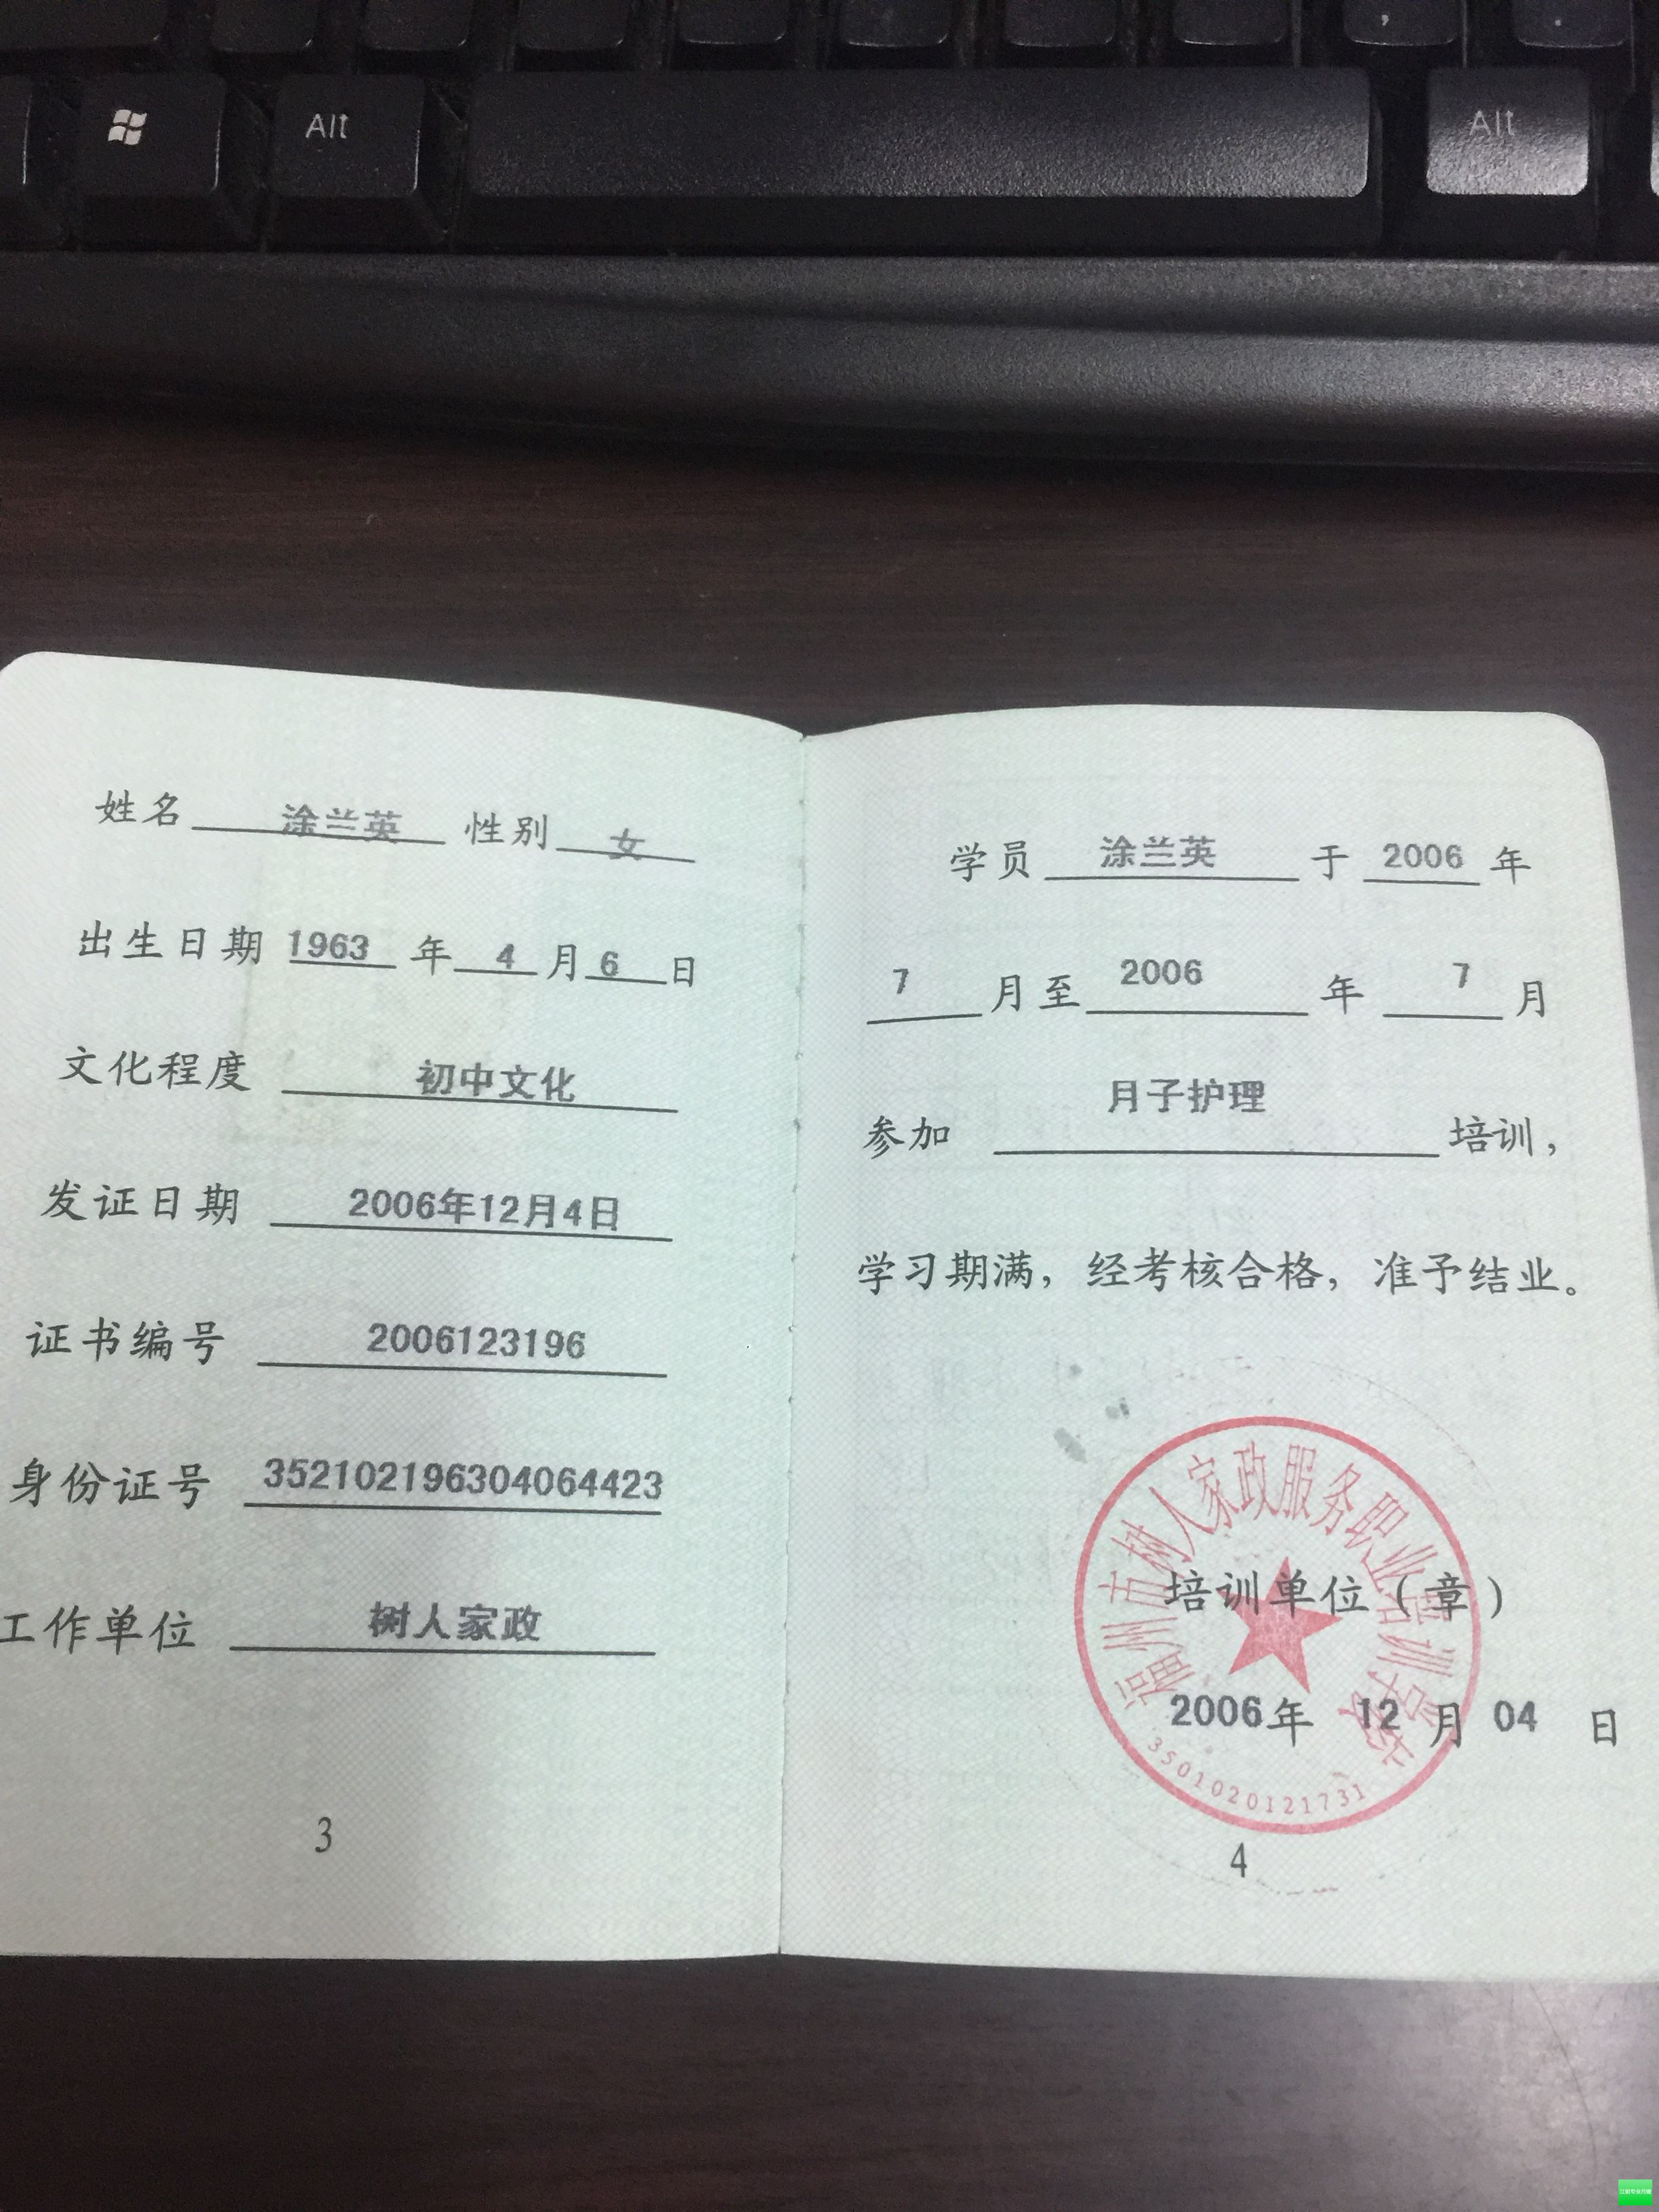 Alt
Alt
姓名 涂兰英 性别 女
出生日期 1963 年 4 月 6 日
文化程度 初中文化
发证日期 2006年12月4日
证书编号 2006123196
身份证号 352102196304064423
工作单位 树人家政
3
学员 涂兰英 于 2006 年
7 月至 2006 年 7 月
参加 月子护理 培训,
学习期满,经考核合格,准予结业。
福州市树人家政服务职业培训学校
培训单位(章)
2006年 12 月 04 日
3501020121731
4